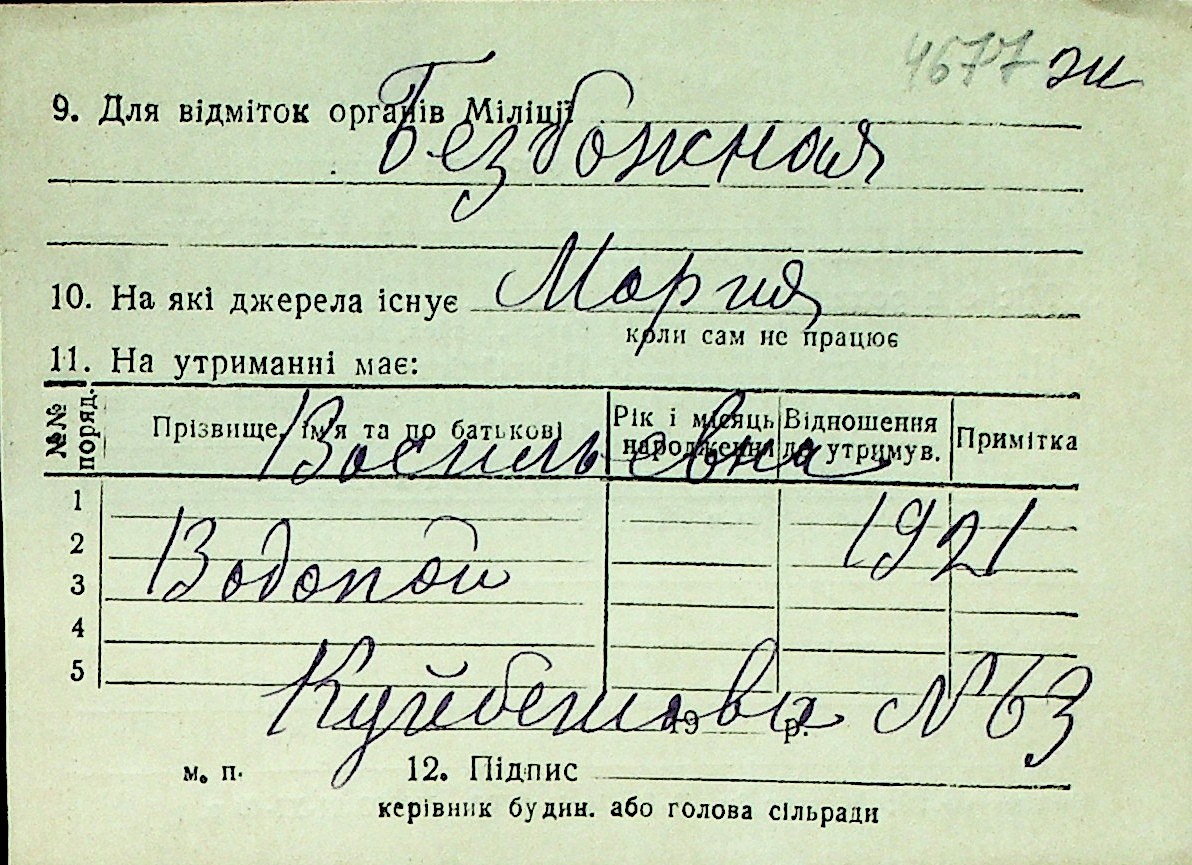 4677 жи
9. Для відміток органів Міліції
Безбожная
10. На які джерела існує
Мария
коли сам не працює
11. На утриманні має:
№№ поряд. Прізвище, ім'я та по батькові Рік і місяць народження Відношення до утримув. Примітка
Васильевна
1
1921
2
Водопой
3
4
5
Куйбешова №63
19 р.
м. п. 12. Підпис
керівник будин. або голова сільради